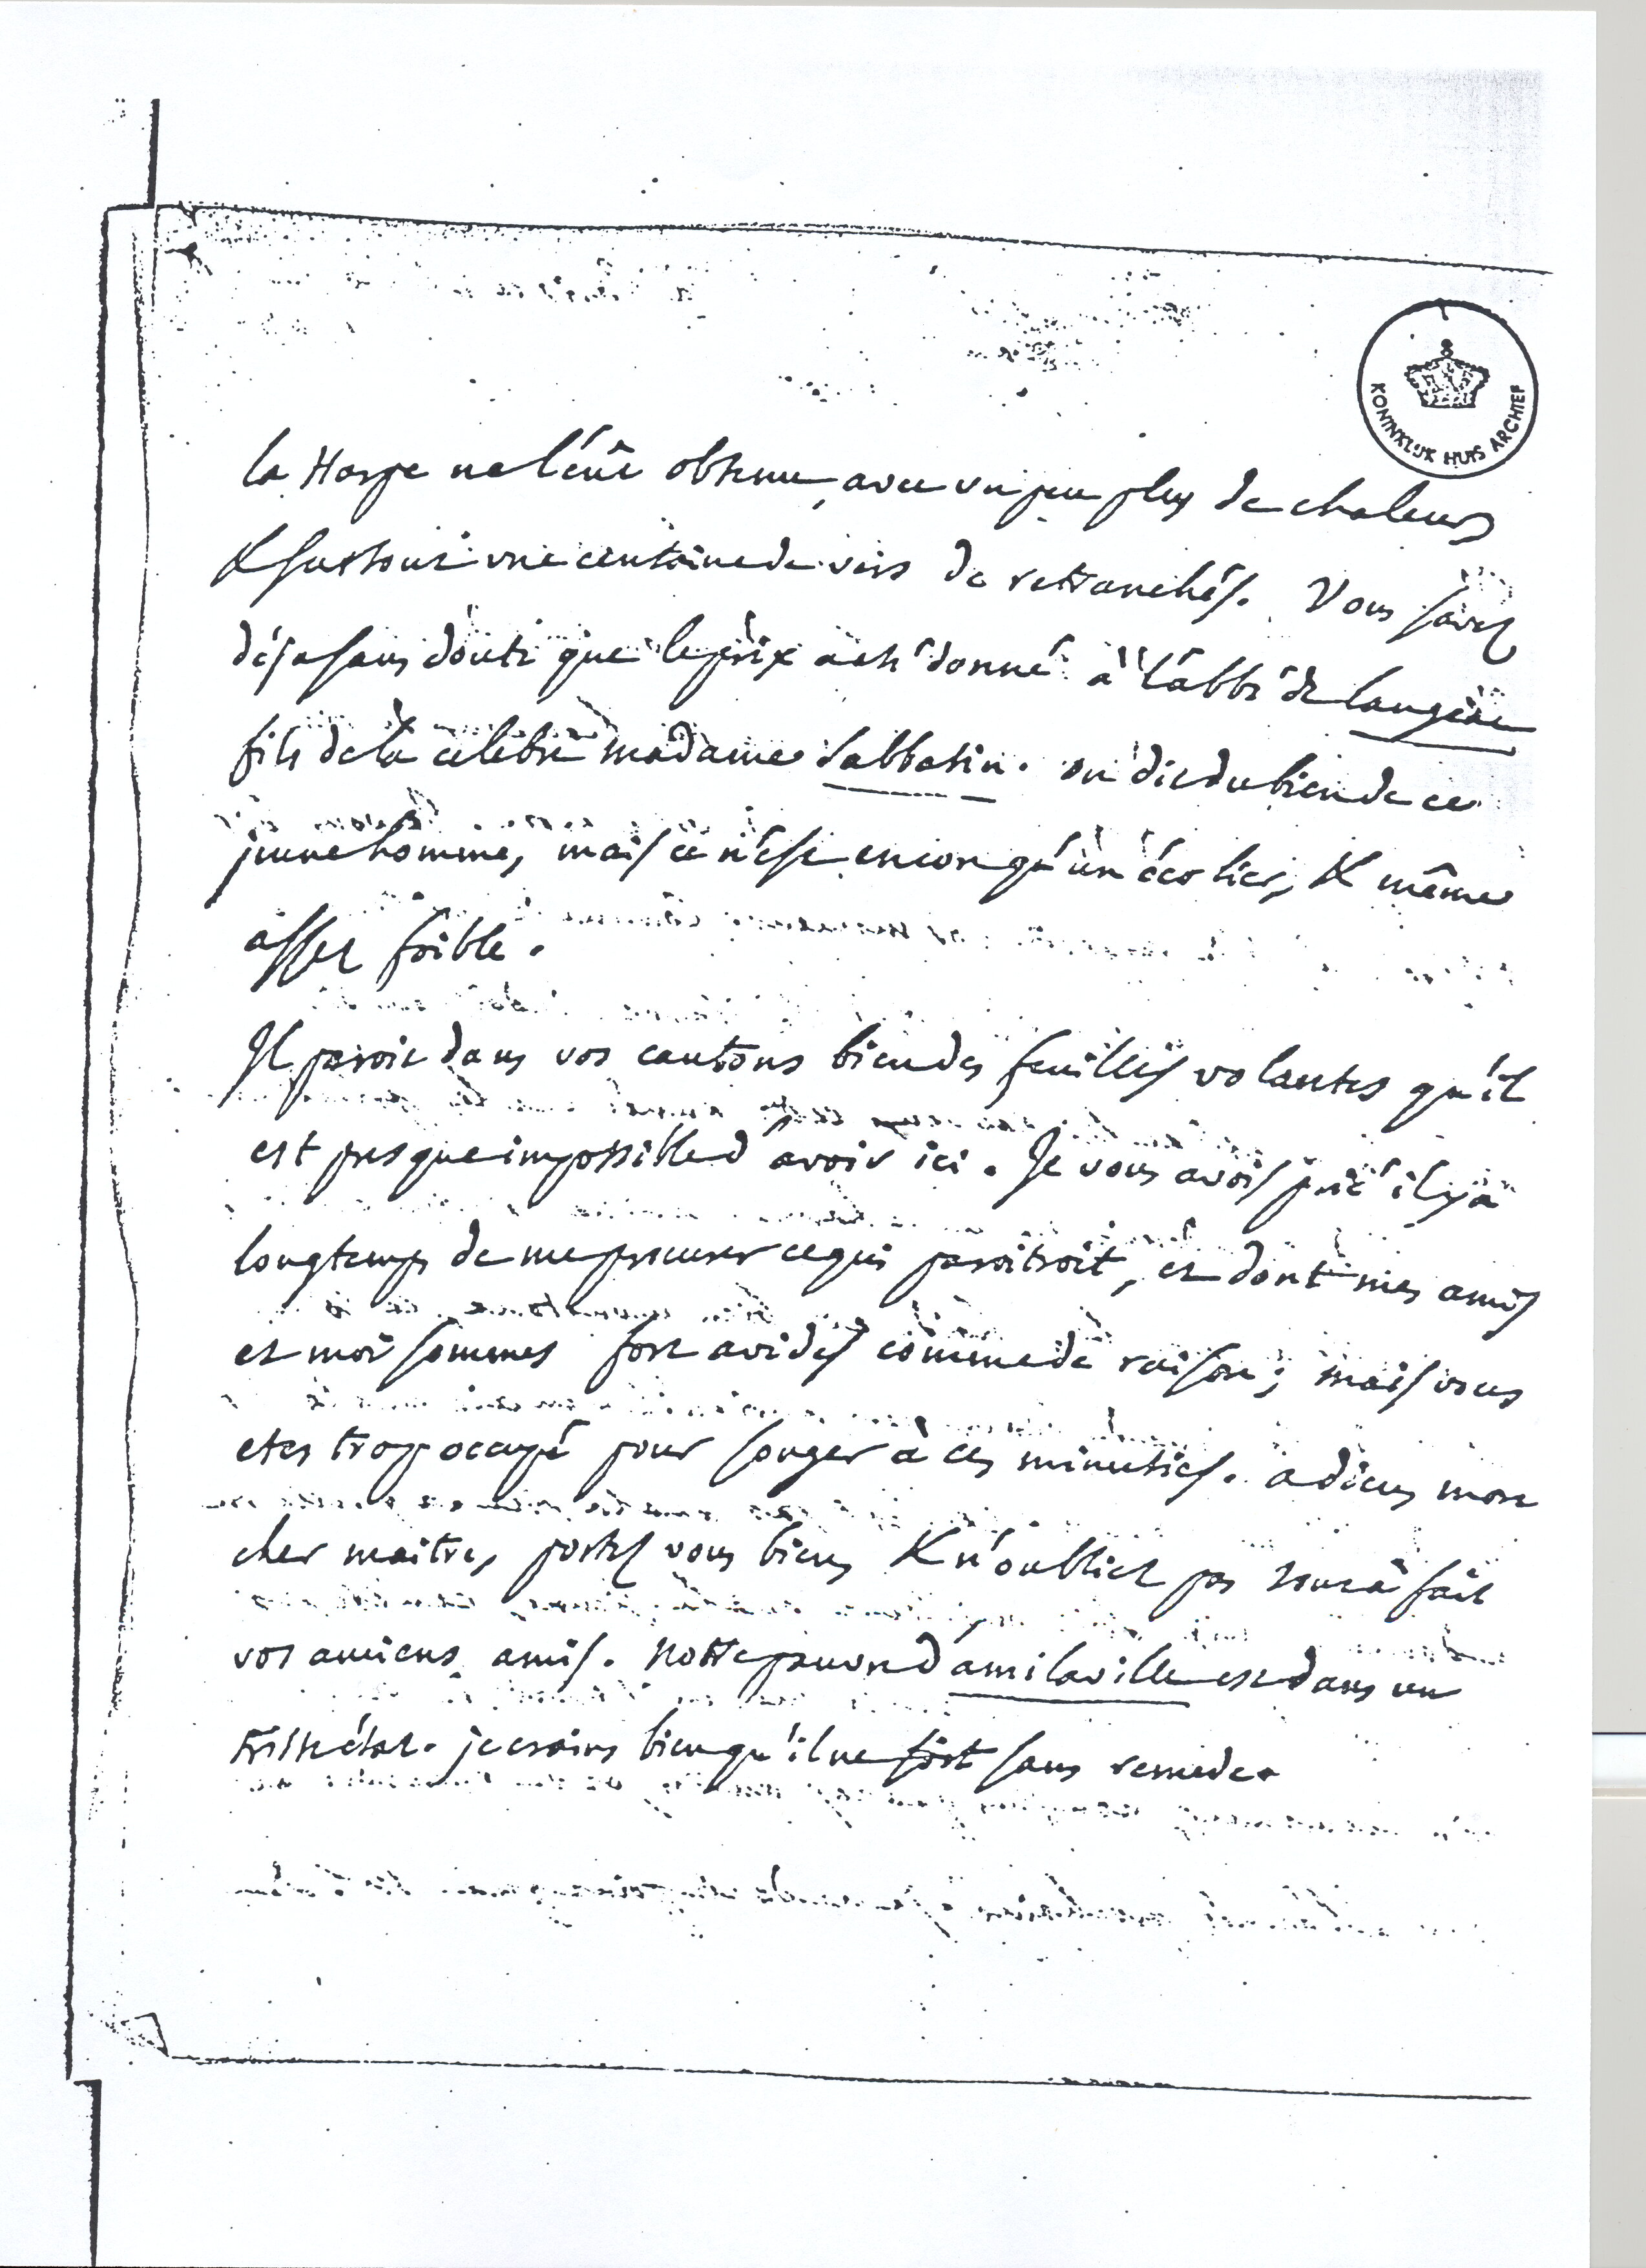 KONINKLIJK HUIS ARCHIEF
la Harpe ne l'eût obtenu, avec un peu plus de chaleur
& surtout une centaine de vers de retranchés. Vous savez
déja sans doute que le prix a eté donné à l'abbé de langeac
fils de la célèbre madame Sabbatin. on dit du bien de ce
jeune homme, mais ce n'est encor qu'un écolier, & même
assez foible.
Il paroit dans vos cantons bien des feuilles volantes qu'il
est presque impossible d'avoir ici. Je vous avois prié il y a
longtemps de me procurer ce qui paroitroit, et dont mes amis
et moi sommes fort avides comme de raison; mais vous
etes trop occupé pour songer à ces minuties. adieu, mon
cher maitre, portez vous bien, & n'oubliez pas tout à fait
vos anciens amis. notre pauvre damilaville est dans un
triste état. je crains bien qu'il ne soit sans remede.